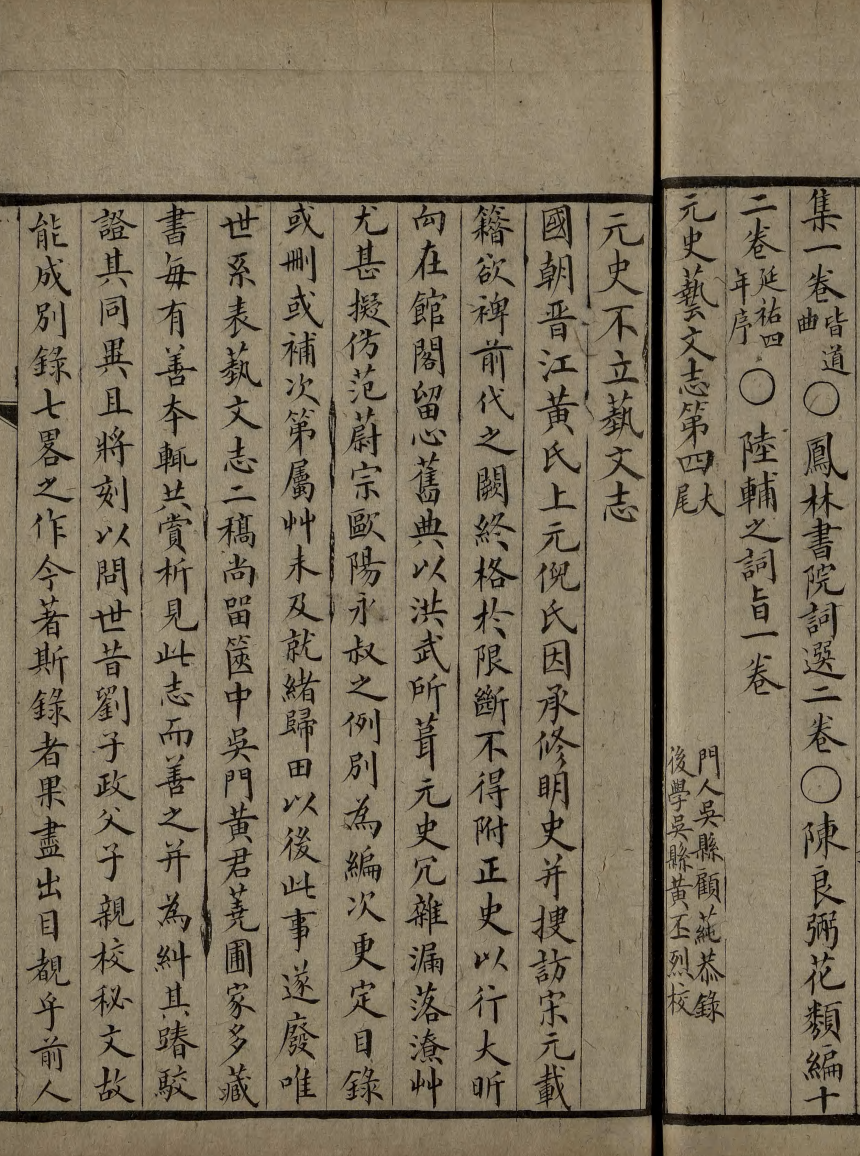 集一卷皆道曲○鳳林書院詞選二卷○陳良弼花類編十
二卷延祐四年序○陸輔之詞旨一卷
元史藝文志第四大尾
門人吳縣顧蒓恭錄
後學吳縣黃丕烈校
元史不立藝文志
國朝晋江黃氏上元倪氏因承修明史并搜訪宋元載
籍欲裨前代之闕終格於限斷不得附正史以行大昕
向在館閣留心舊典以洪武所葺元史冗雜漏落潦艸
尤甚擬仿范蔚宗歐陽永叔之例別為編次更定目錄
或刪或補次第屬艸未及就緒歸田以後此事遂廢唯
世系表藝文志二稿尚畱篋中吳門黃君蕘圃家多藏
書每有善本輒共賞析見此志而善之并為糾其踳駁
證其同異且將刻以問世昔劉子政父子親校秘文故
能成別錄七畧之作今著斯錄者果盡出目覩乎前人